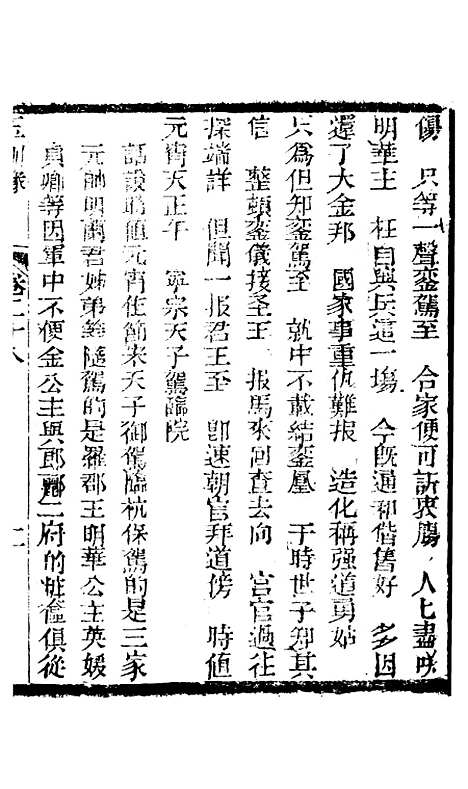 傷　只等一聲鑾駕至　合家便可訴衷腸　人七盡咲
明華主　枉自與兵這一塲　今旣通和偕舊好　多因
還了大金邦　國家事重仇難報　造化稱强道勇姑
只爲但知鑾駕至　就中不載結鑾凰　于時世子知其
信　整頓鑾儀接圣王　報馬來回查去向　宮官過往
探端詳　但聞一報君王至　卽速朝官拜道傍　時值
元宵天正午　寧宗天子駕臨院
話說時值元宵佳節宋天子御駕臨杭保駕的是三家
元帥明蘭君姊弟餘隨駕的是羅郡王明華公主英媛
貞卿等因軍中不便金公主與郎酈二府的粧奩俱從
卷二十八